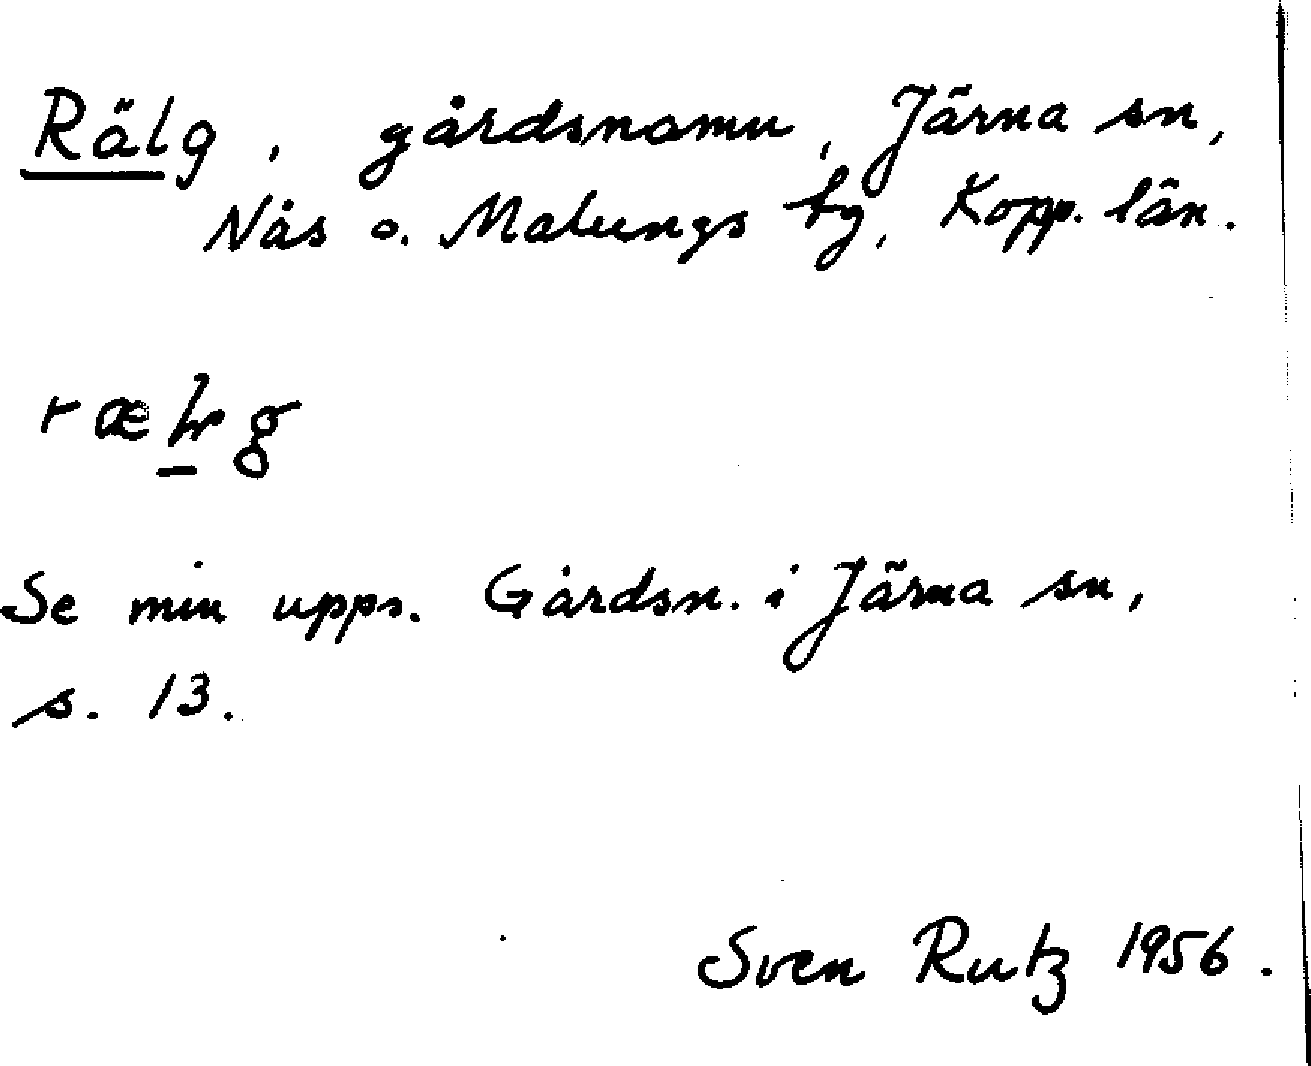 Rälg, gårdsnamn, Järna sn,
Nås o. Malungs tg, Kopp. län.
Se min upps. Gårdsn. i Järna sn,
s. 13.
Sven Rutz 1956.